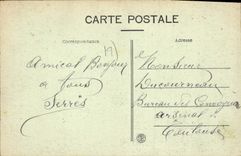 CARTE POSTALE
Correspondance
Adresse
Amical Bonjour
à tous
Serres
Monsieur
Ducourneau
Bureau des
Arsenal
Toulouse